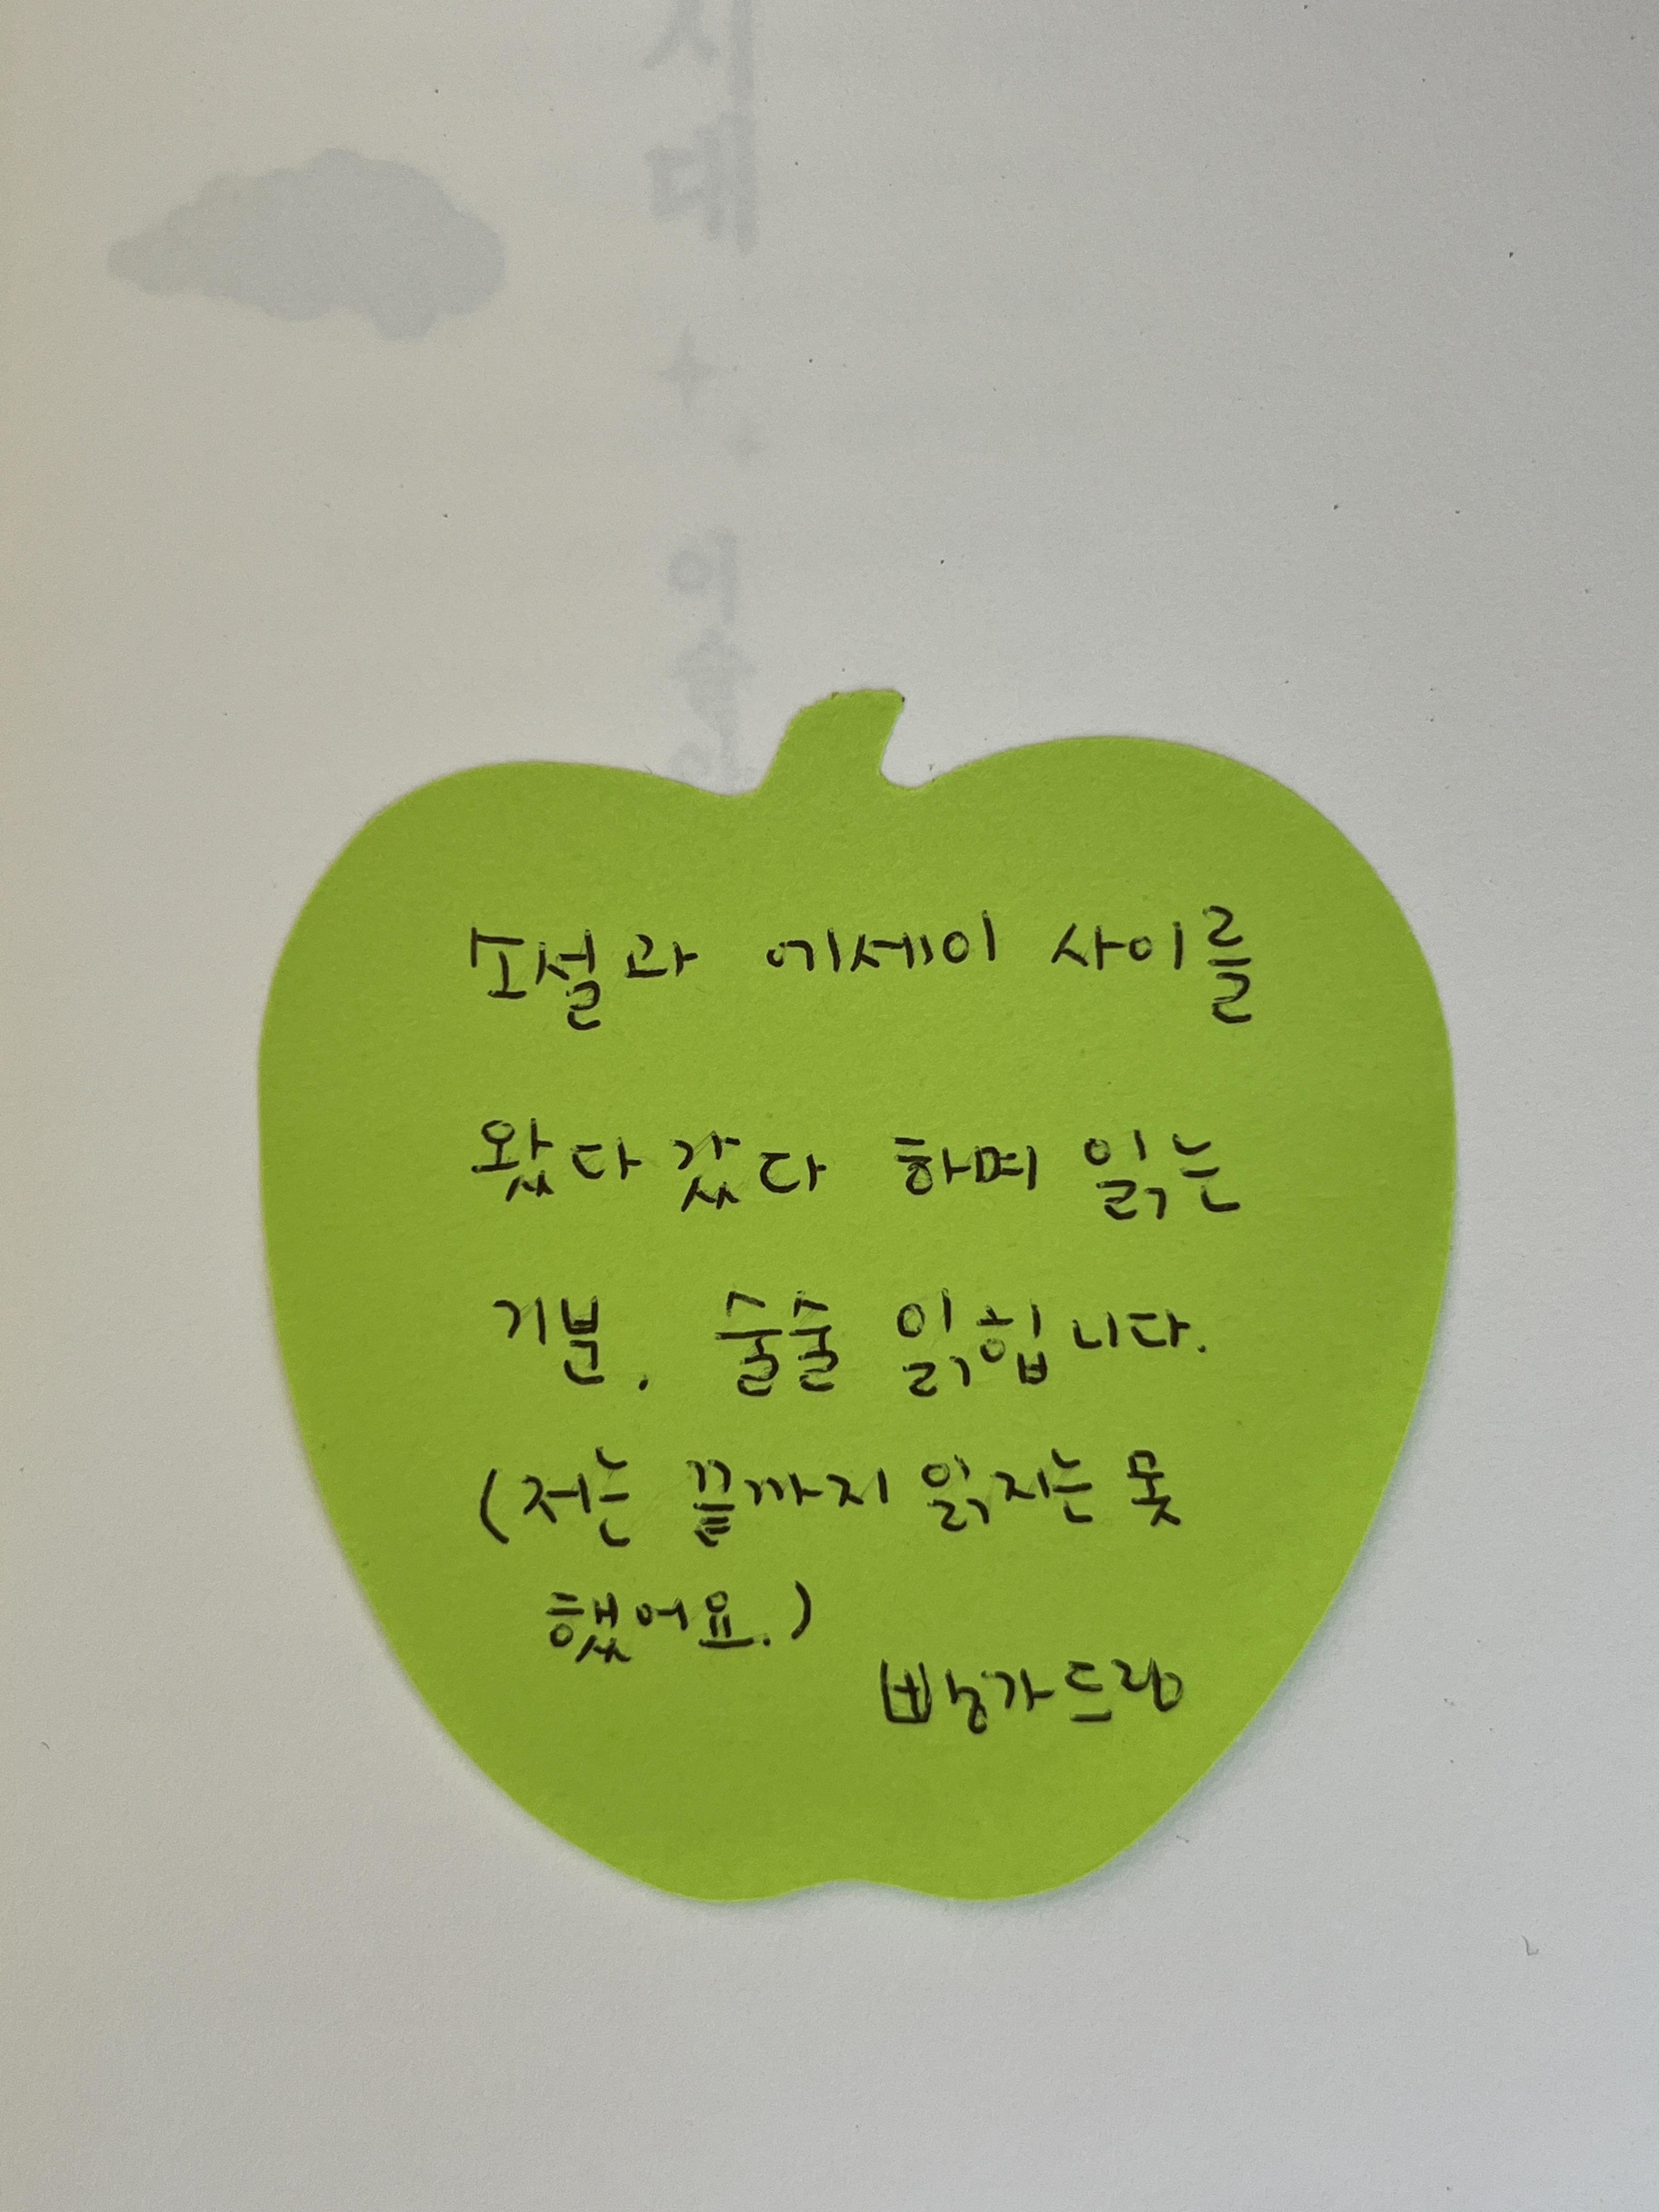 소설과 에세이 사이를
왔다갔다 하며 읽는
기분. 술술 읽힙니다.
(저는 끝까지 읽지는 못
했어요.)
빵가드림